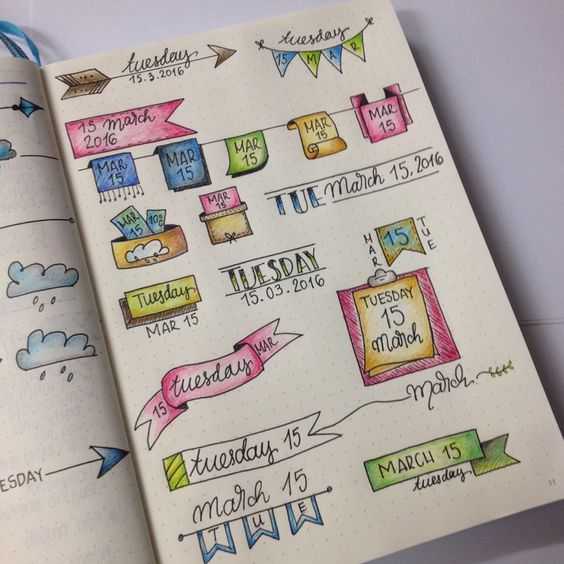 tuesday
15.3.2016
tuesday
15 MAR
15 March
2016
MAR
15
MAR
15
MAR
15
MAR
15
MAR
15
MAR
15
MAR
15
TUE March 15. 2016
TUESDAY
15.03.2016
MAR
15
TUE
Tuesday
MAR 15
TUESDAY
15
March
15 tuesday MAR
March
tuesday 15
MARCH 15
tuesday
March 15
TUE
ESDAY